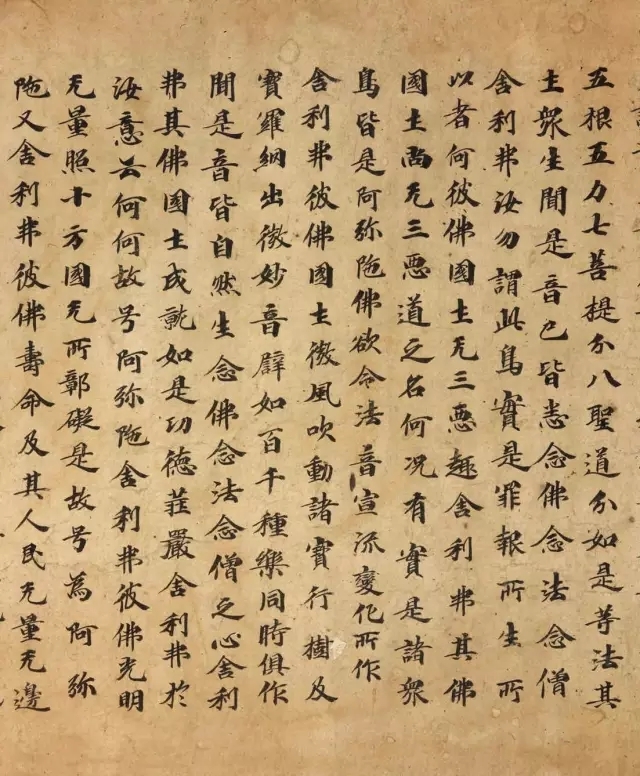 五根五力七菩提分八聖道分如是等法其
土衆生聞是音已皆悉念佛念法念僧
舍利弗汝勿謂此鳥實是罪報所生所
以者何彼佛國土无三惡趣舍利弗其佛
國土尚无三惡道之名何況有實是諸衆
鳥皆是阿弥陁佛欲令法音宣流變化所作
舍利弗彼佛國土微風吹動諸寶行樹及
寶羅網出微妙音譬如百千種樂同時俱作
聞是音皆自然生念佛念法念僧之心舍利
弗其佛國土成就如是功德莊嚴舍利弗於
汝意云何何故号阿弥陁舍利弗彼佛光明
无量照十方國无所鄣礙是故号為阿弥
陁又舍利弗彼佛壽命及其人民无量无邊